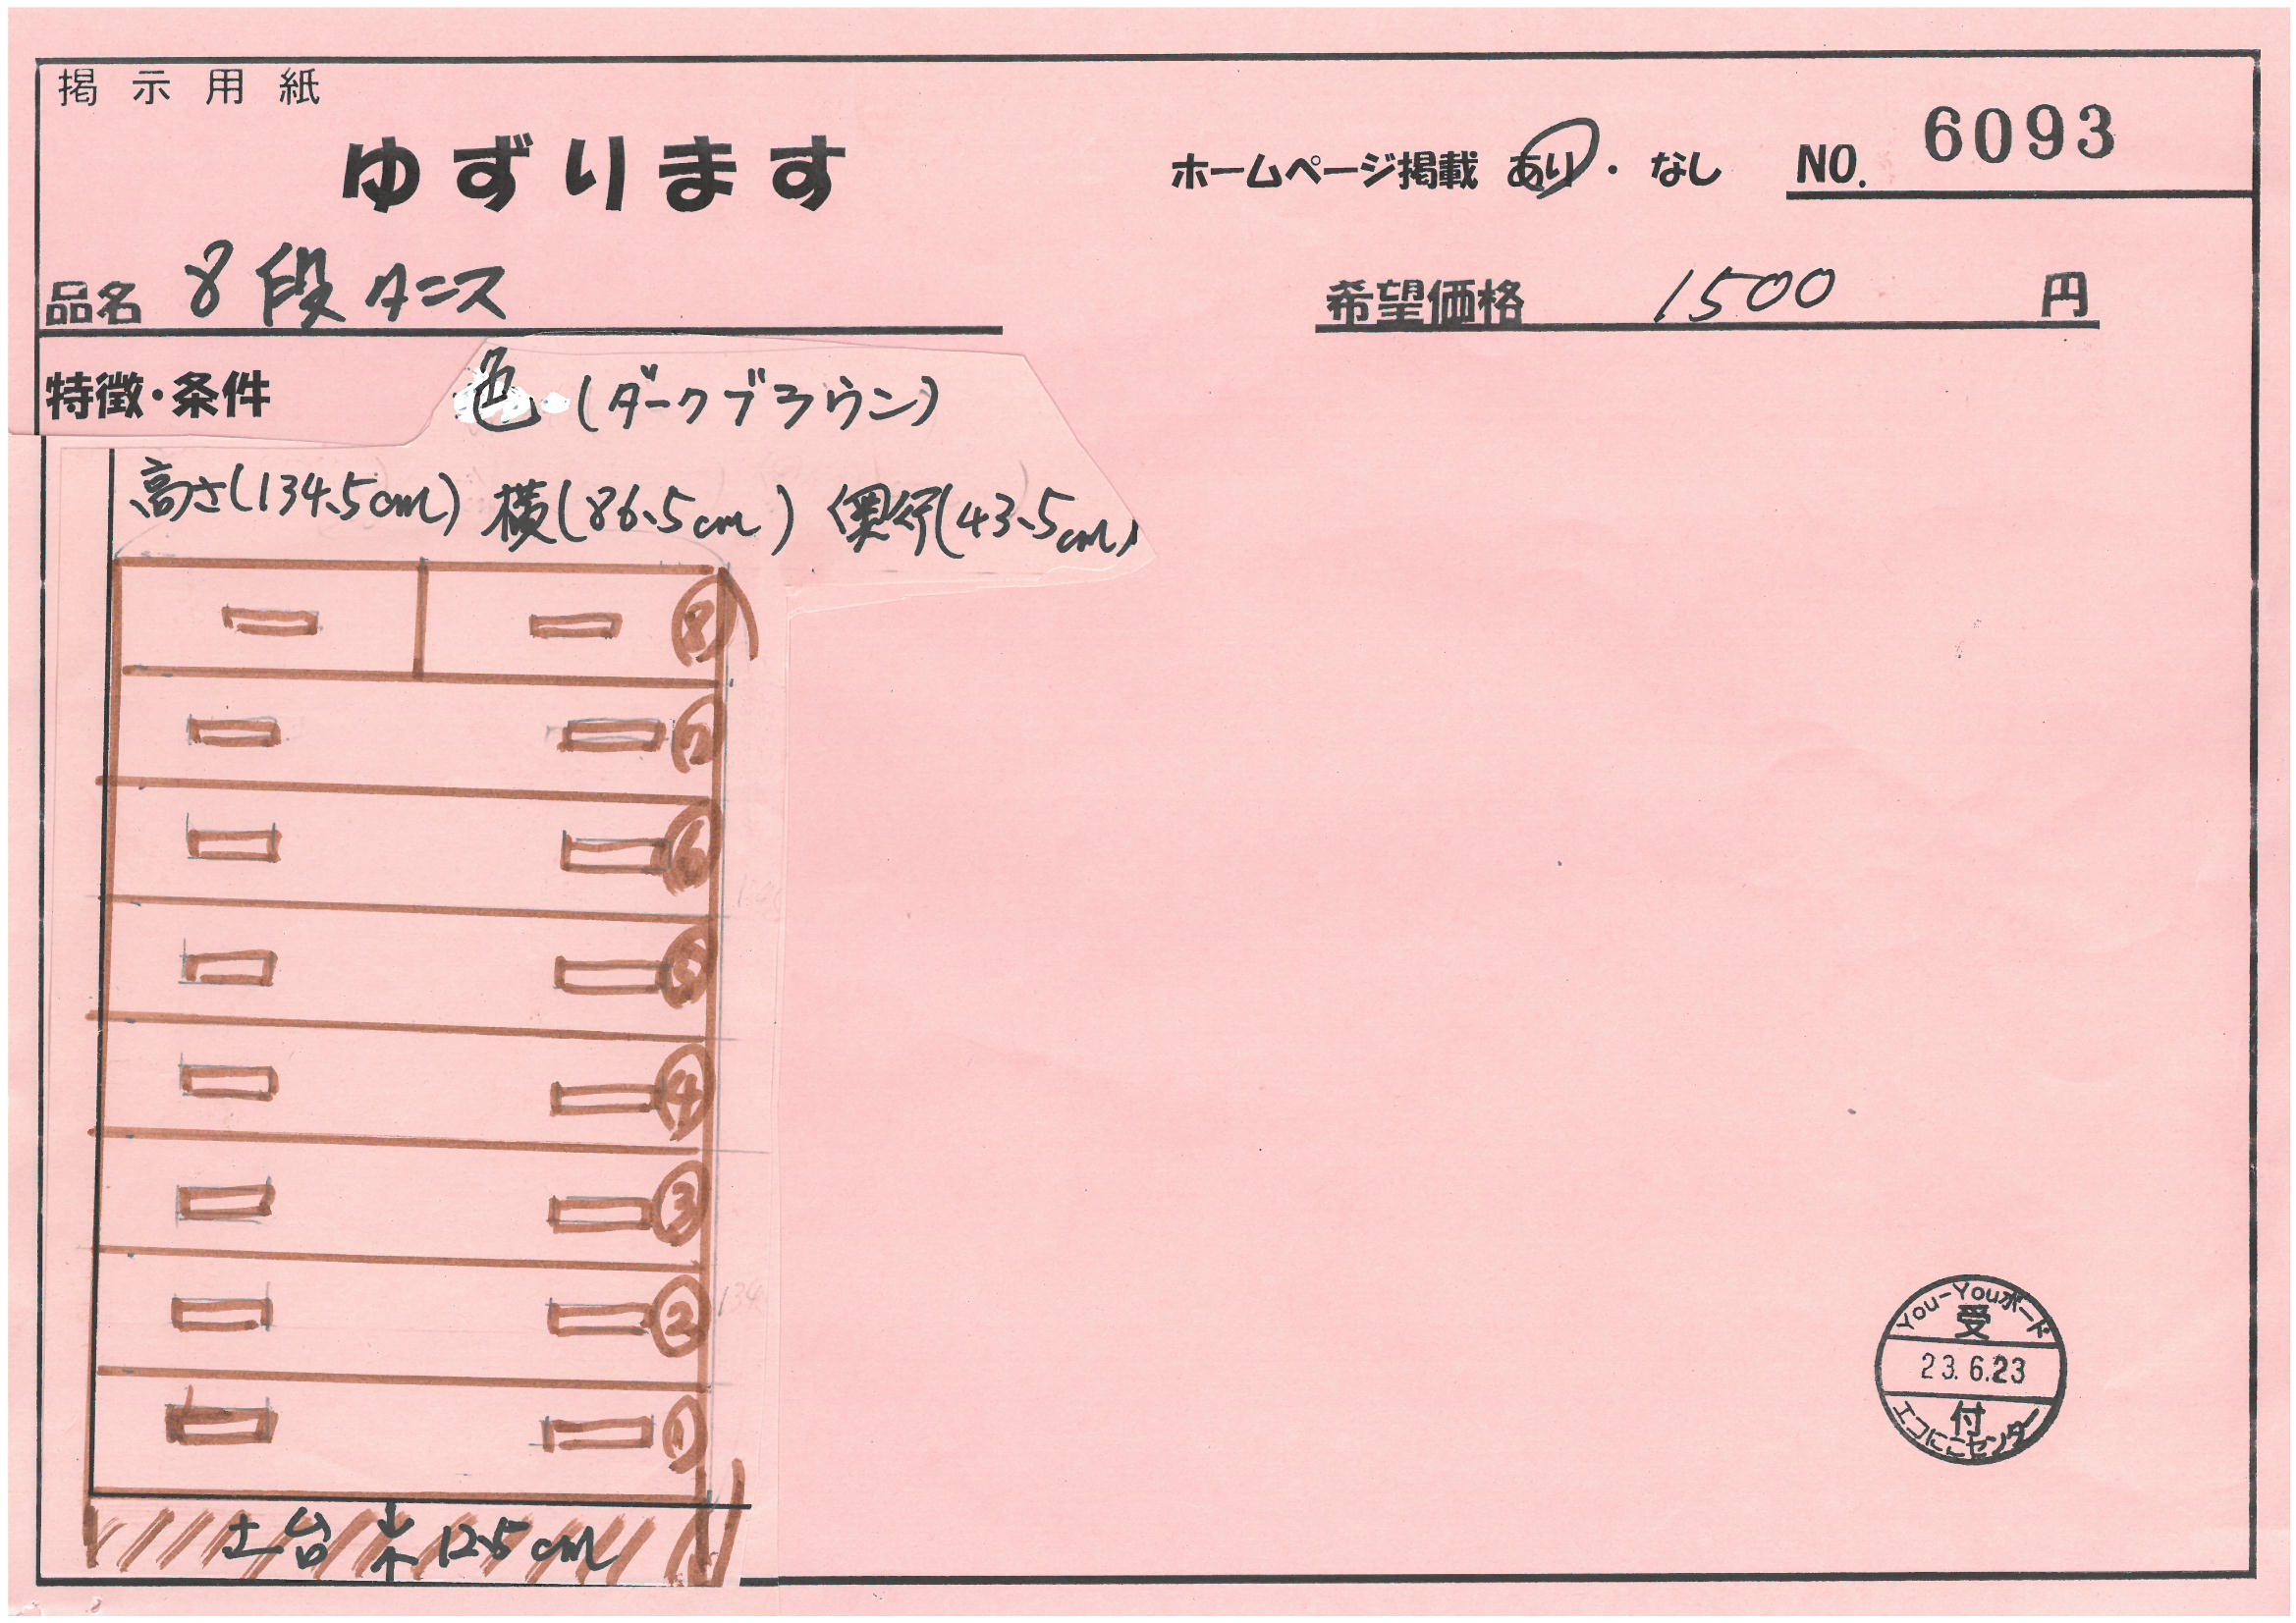 掲示用紙
ゆずります
ホームページ掲載 あり・なし NO. 6093
品名 8段タンス
希望価格 1500 円
特徴・条件 色(ダークブラウン)
高さ(134.5cm) 横(86.5cm) 奥行(43.5cm)
⑧
⑦
⑥
⑤
④
③
②
①
土台 12.5cm
You-Youボード
受
23.6.23
付
エコにこセンター